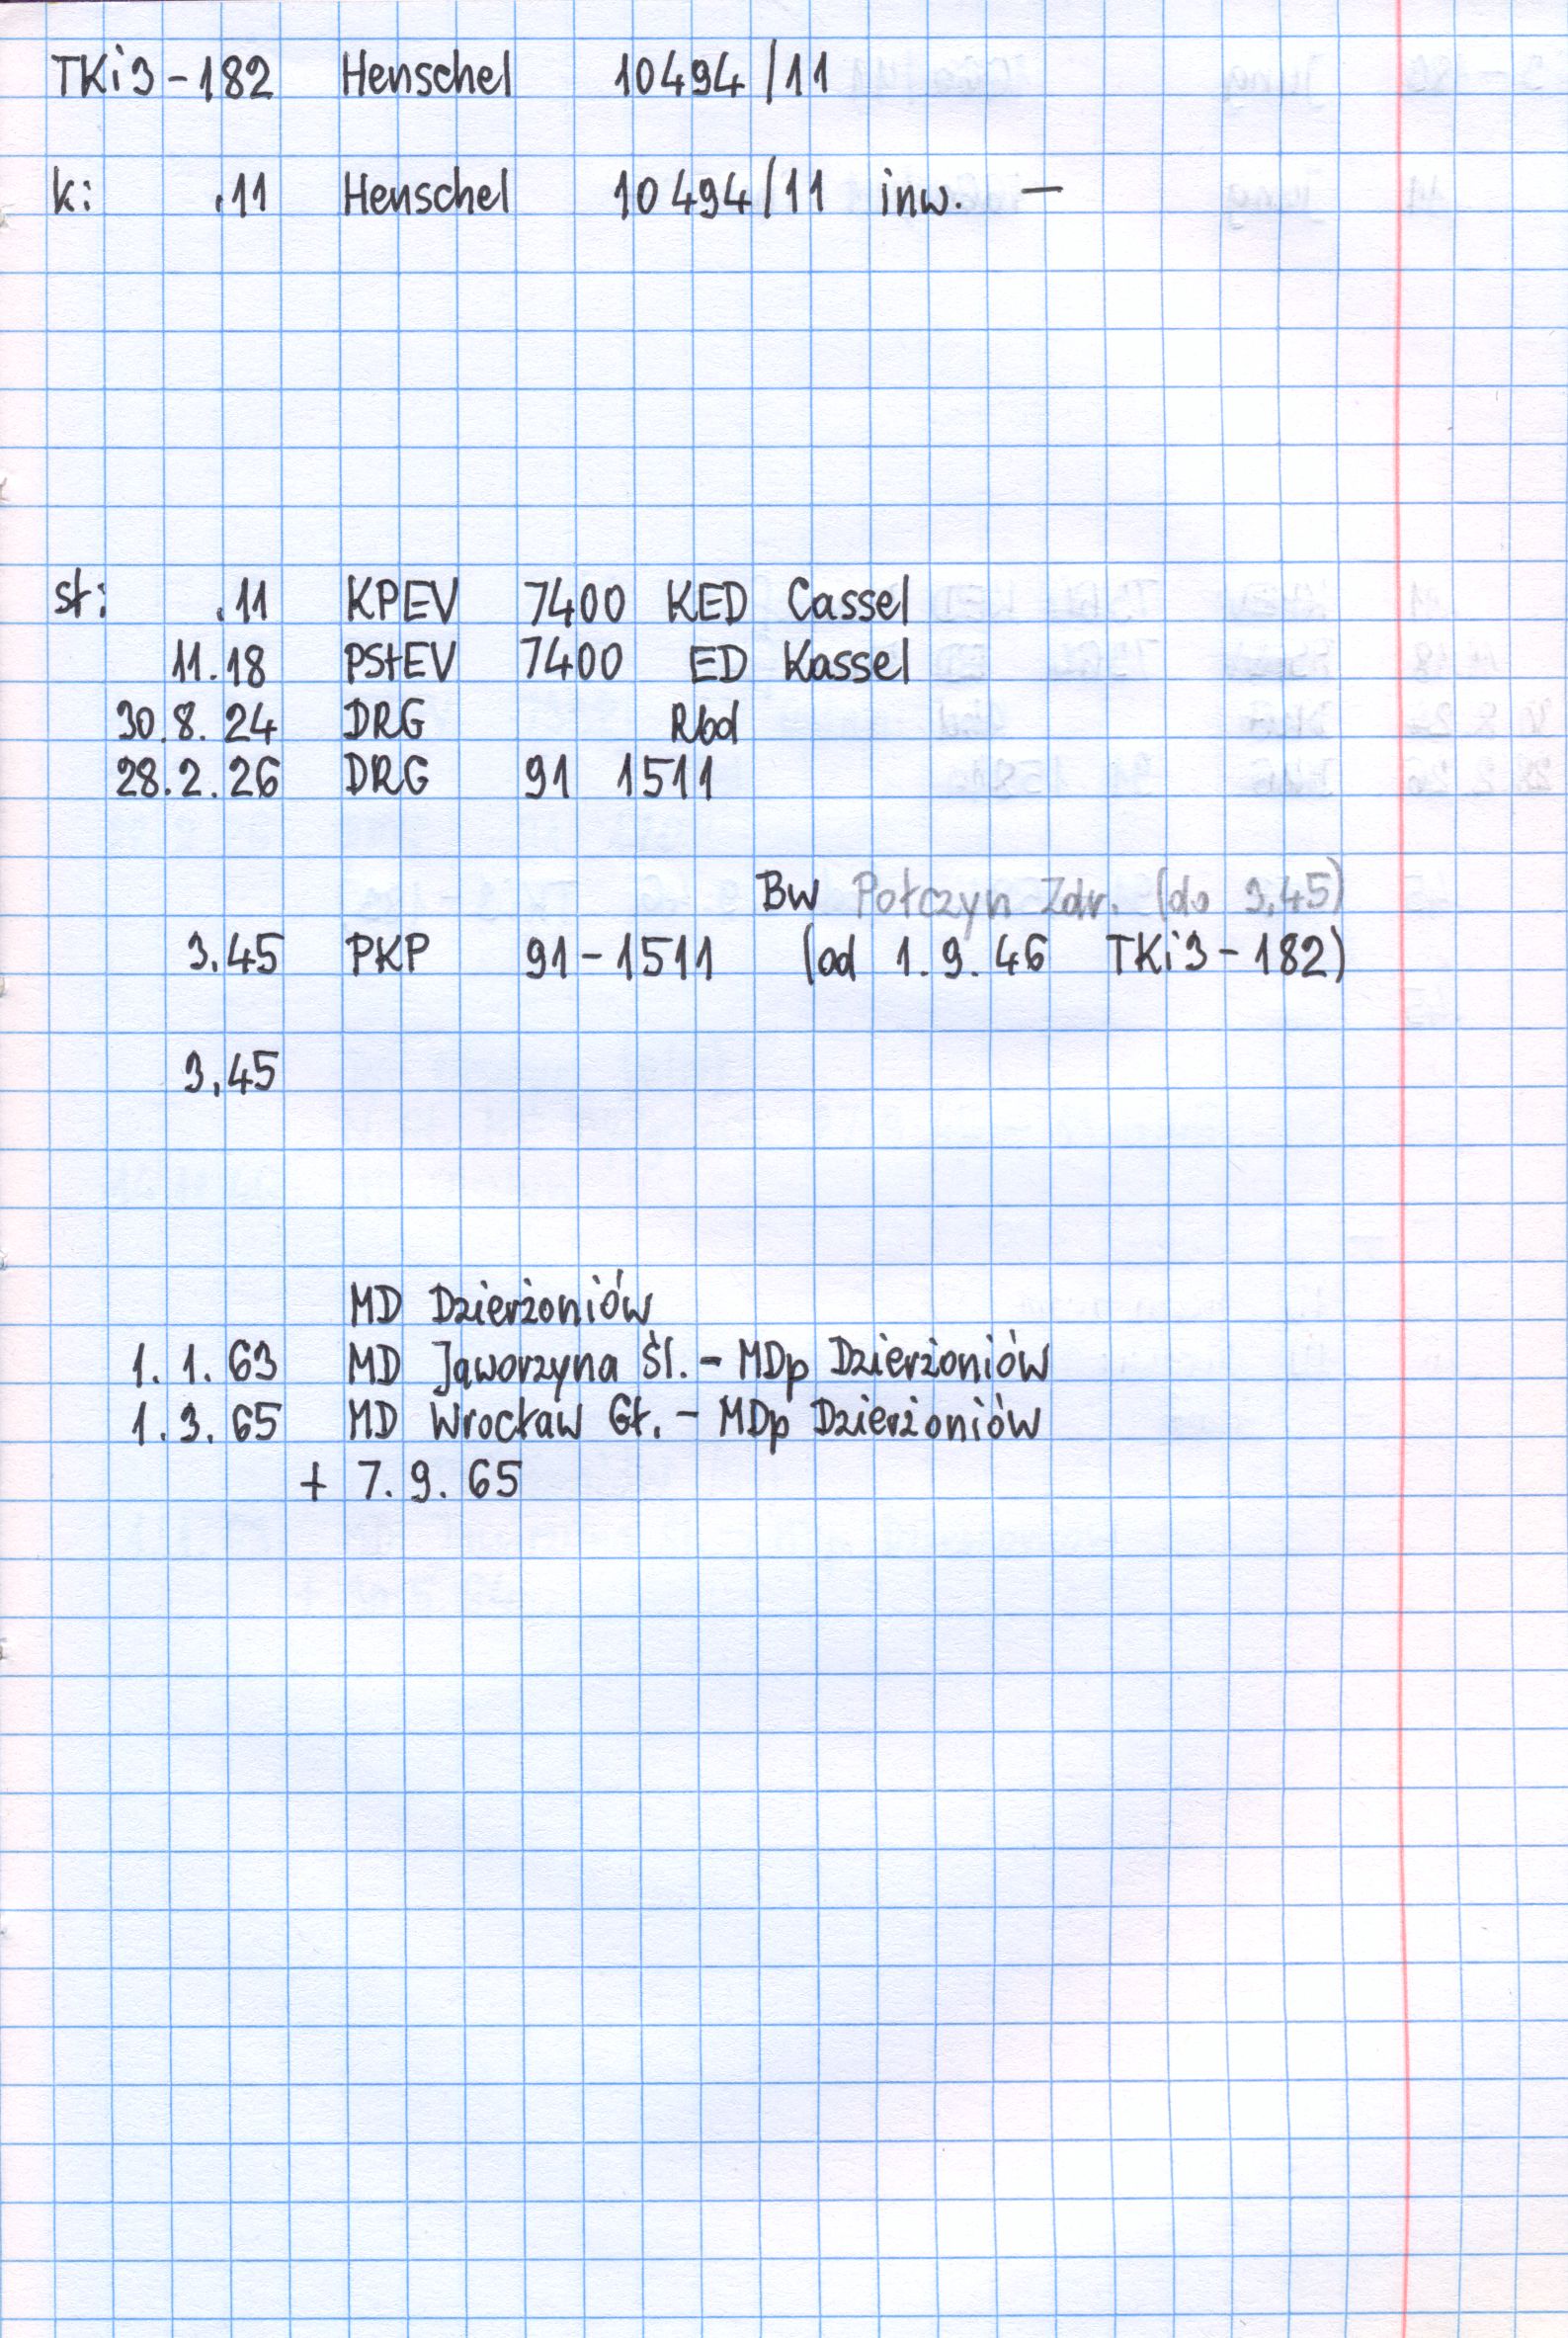 TKi3-182 Henschel 10494/11
k: .11 Henschel 10494/11 inw. —
st: .11 KPEV 7400 KED Cassel
11.18 PStEV 7400 ED Kassel
30.8.24 DRG Rbd
28.2.26 DRG 91 1511
Bw Połczyn Zdr. (do 3.45)
3.45 PKP 91-1511 (od 1.9.46 TKi3-182)
3.45
MD Dzierżoniów
1.1.63 MD Jaworzyna Śl. - MDp Dzierżoniów
1.3.65 MD Wrocław Gł. - MDp Dzierżoniów
+ 7.9.65